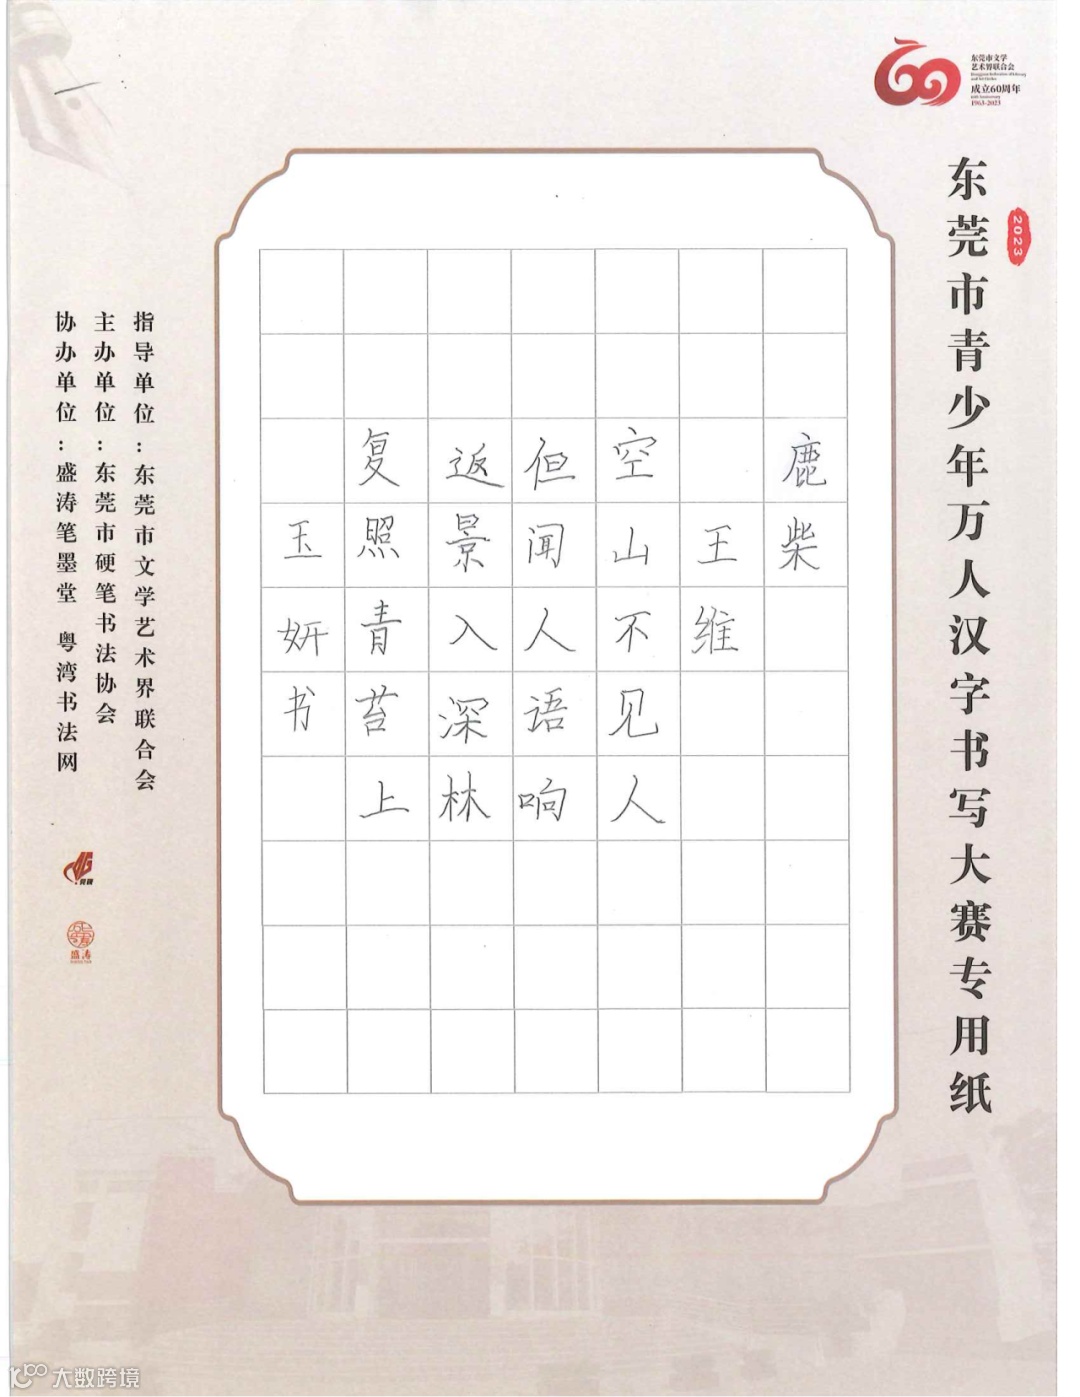 东莞市文学
艺术界联合会
成立60周年
1963-2023
2023
东莞市青少年万人汉字书写大赛专用纸
鹿柴
王维
空山不见人
但闻人语响
返景入深林
复照青苔上
玉妍书
指导单位：东莞市文学艺术界联合会
主办单位：东莞市硬笔书法协会
协办单位：盛涛笔墨堂 粤湾书法网
盛涛
大数跨境